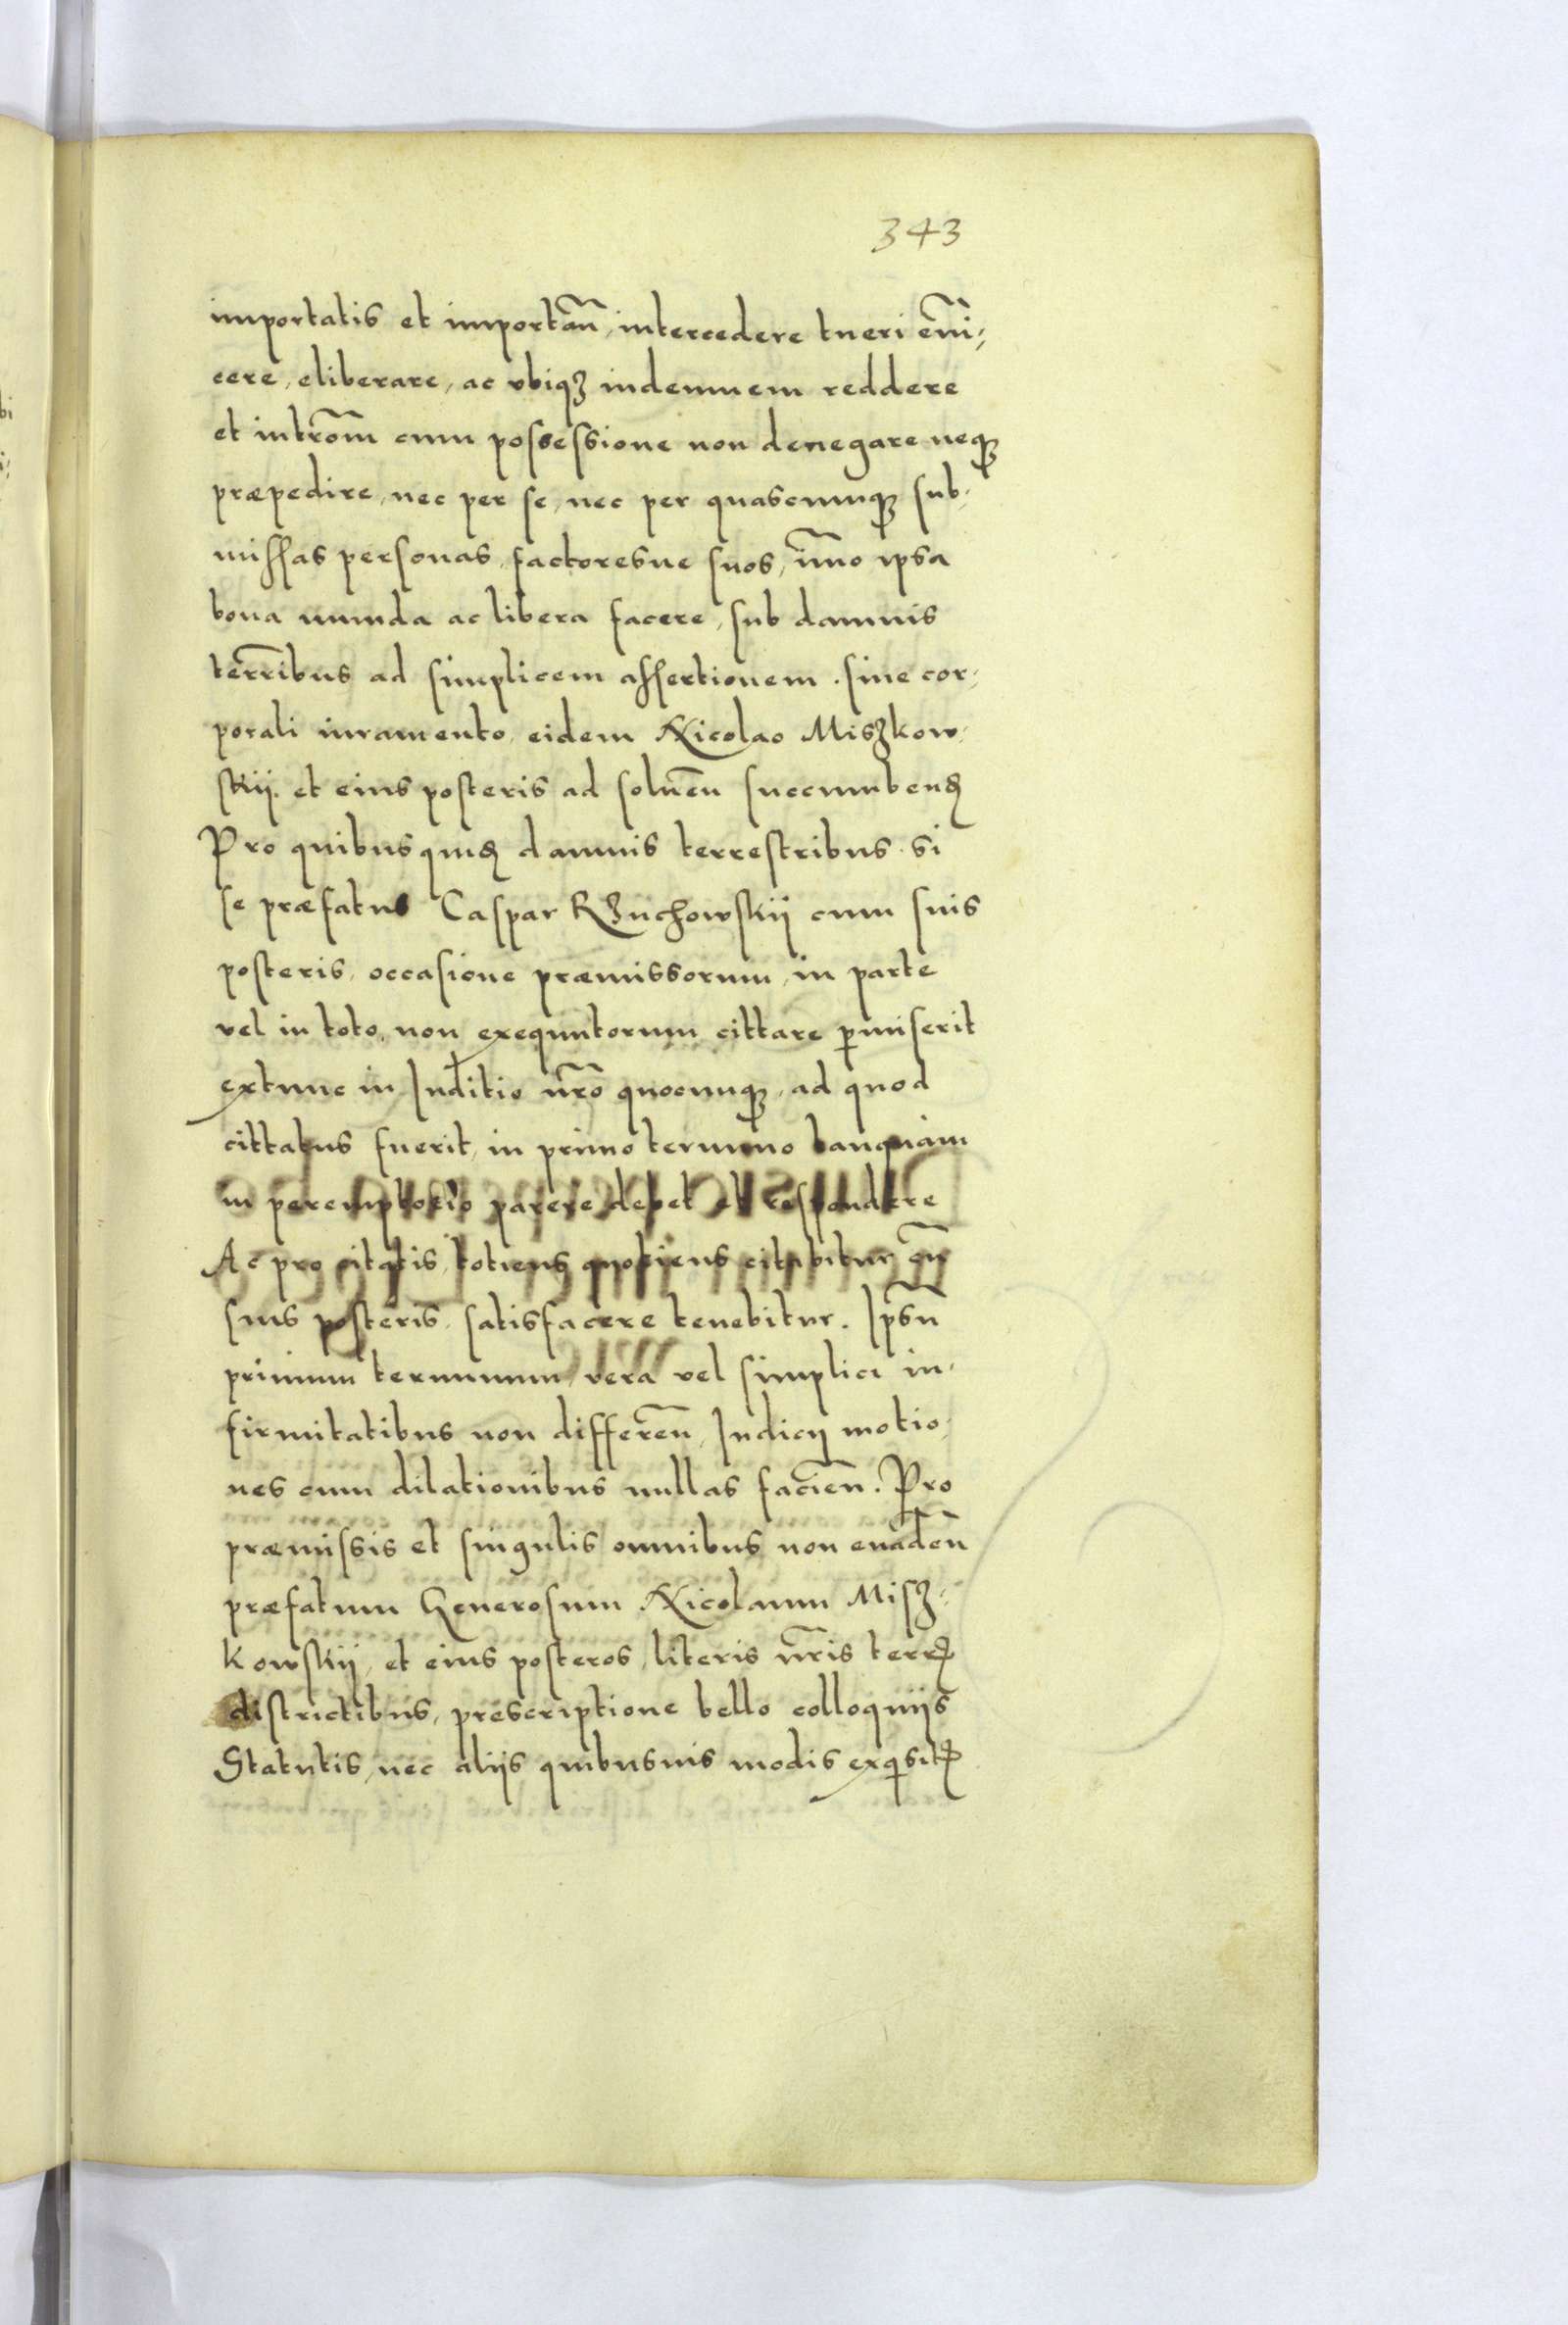 343
importatis et importan̄, intercedere tueri evin̄-
cere, eliberare, ac vbiqꝫ indemnem reddere
et introm̄ cum possessione non denegare neqꝫ
præpedire, nec per se, nec per quascunqꝫ sub-
missas personas, factoresue suos, im̄o ipsa
bona munda ac libera facere, sub damnis
terrībus ad simplicem assertionem. sine cor-
porali iuramento, eidem Nicolao Miszkow-
skij. et eius posteris ad soluen̄ succumbenꝺ
Pro quibus quiꝺ damnis terrestribus. si
se præfatus Caspar Rzuchowskij cum suis
posteris, occasione præmissorum, in parte
vel in toto, non exequutorum cittare p̄miserit
extunc in Juditio nr̄o quocunqꝫ, ad quod
cittatus fuerit, in primo termino tanquam
in peremptorio parere debet et respondere
Ac pro citatis, totiens quotiens citabitur cū
suis posteris, satisfacere tenebitur. Ipsūn
primum terminum, vera vel simplici in-
firmitatibus non differen̄, Judicij motio-
nes cum dilationibus nullas facien̄. Pro
præmissis et singulis omnibus non euaden̄
præfatum Generosum Nicolaum Misz-
kowskij, et eius posteros, literis nr̄is terrꝭ
districtibus, prescriptione bello colloquijs
Statutis, nec alijs quibusuis modis exqsitꝭ